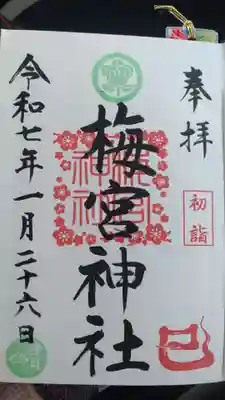 奉拝
初詣
梅宮神社
梅宮神社
巳
令和七年一月二十六日